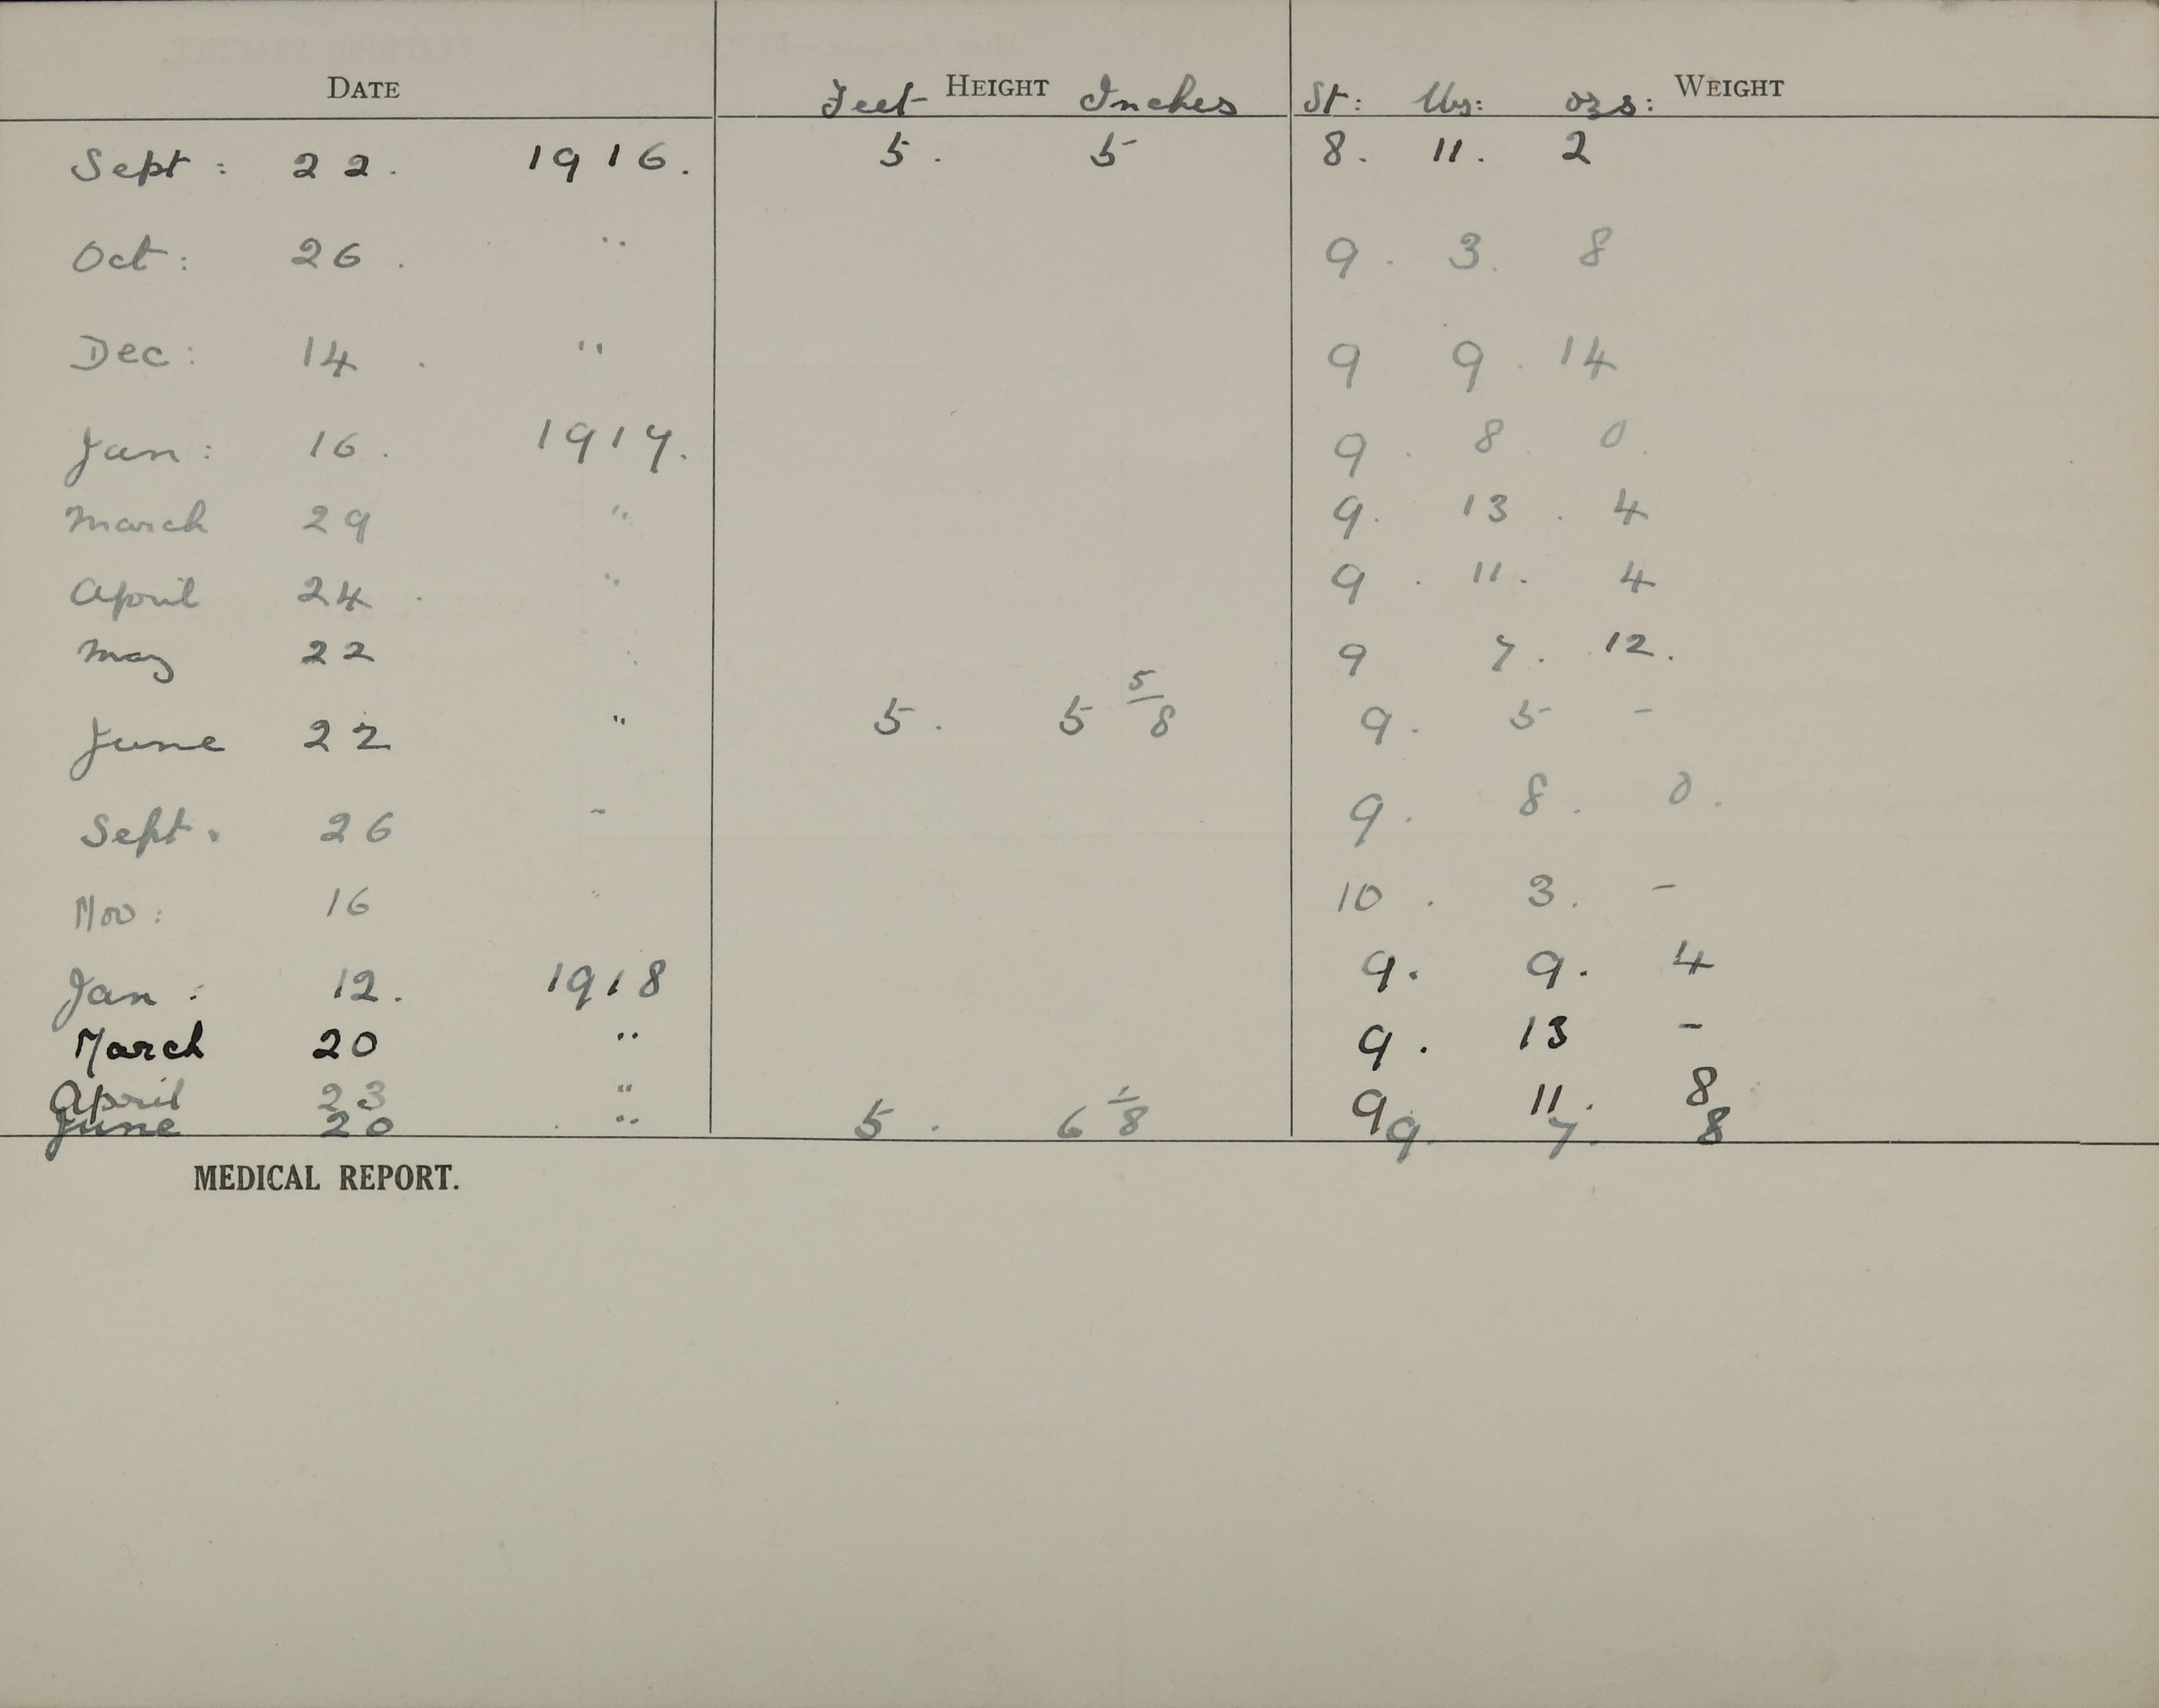 DATE Feet HEIGHT Inches St: lbs: ozs: WEIGHT
Sept: 22. 1916. 5. 5 8. 11. 2
Oct: 26. " 9. 3. 8
Dec: 14. " 9 9. 14
Jan: 16. 1917. 9. 8. 0.
March 29 " 9. 13. 4
April 24. " 9. 11. 4
May 22 " 9 7. 12.
June 22 " 5. 5 5/8 9. 5 -
Sept. 26 - 9. 8. 0.
Nov: 16 " 10. 3. -
Jan: 12. 1918 9. 9. 4
March 20 " 9. 13 -
April 23 " 9 11. 8
June 20 " 5. 6 1/8 9. 7. 8
MEDICAL REPORT.